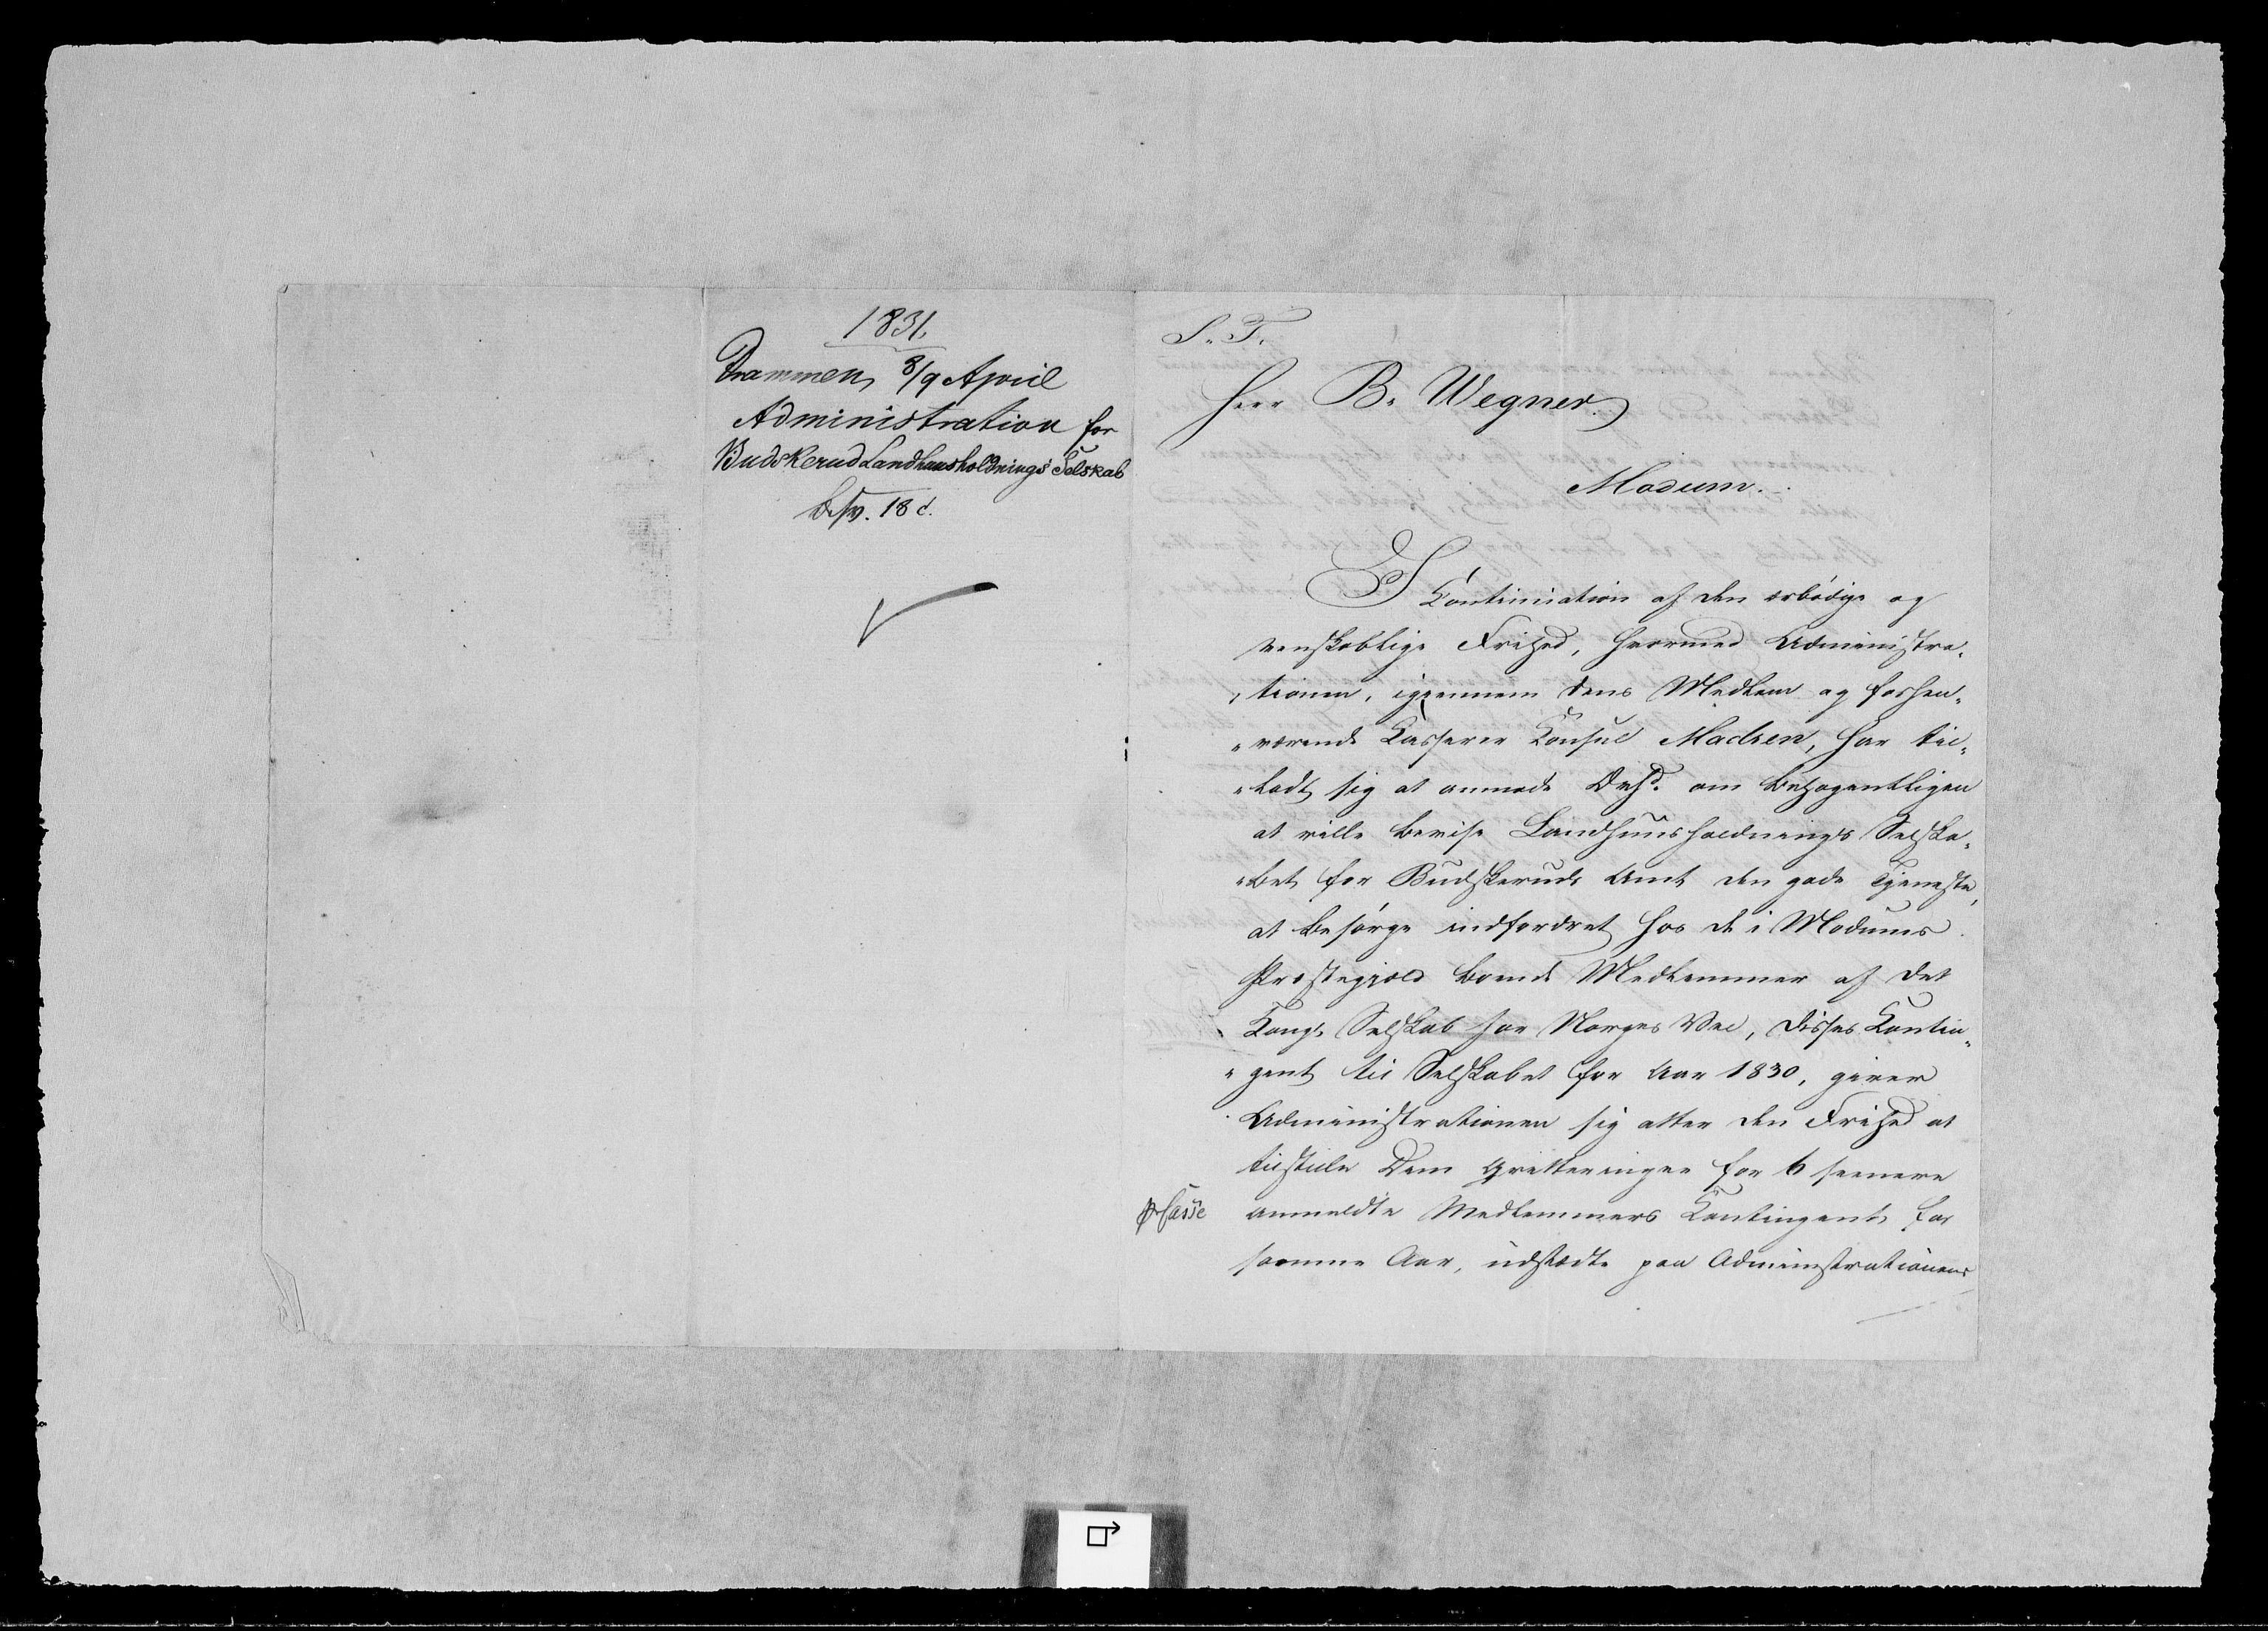 1831.
Drammen, 8/9 April
Administration for
Budskerud Landhuusholdnings Selskab
besv. 18 d.
S. T.
Herr B. Wegner.
Modum.
I Continuation af den ærbødige og
venskablige Frihed, hvormed Administra-
tionen, igjennem dens Medlem og forhen-
værende Kasserer Konsul Madsen, har til-
ladt sig at anmode Dehr. om behagentligen
at ville bevise Landhuusholdnings Selska-
bet for Budskeruds Amt den gode Tjeneste,
at besørge indfordret hos de i Modums
Præstegjæld boende Medlemmer af det
Kongl. Selskab for Norges Vel, disses Kontin-
gent til Selskabet for Aar 1830, giver
Administrationen sig atter den Frihed at
tilstille Dem Qvitteringer for 6 senere
anmeldte Medlemmers Kontingent for
samme Aar, udstædte paa Administrationens